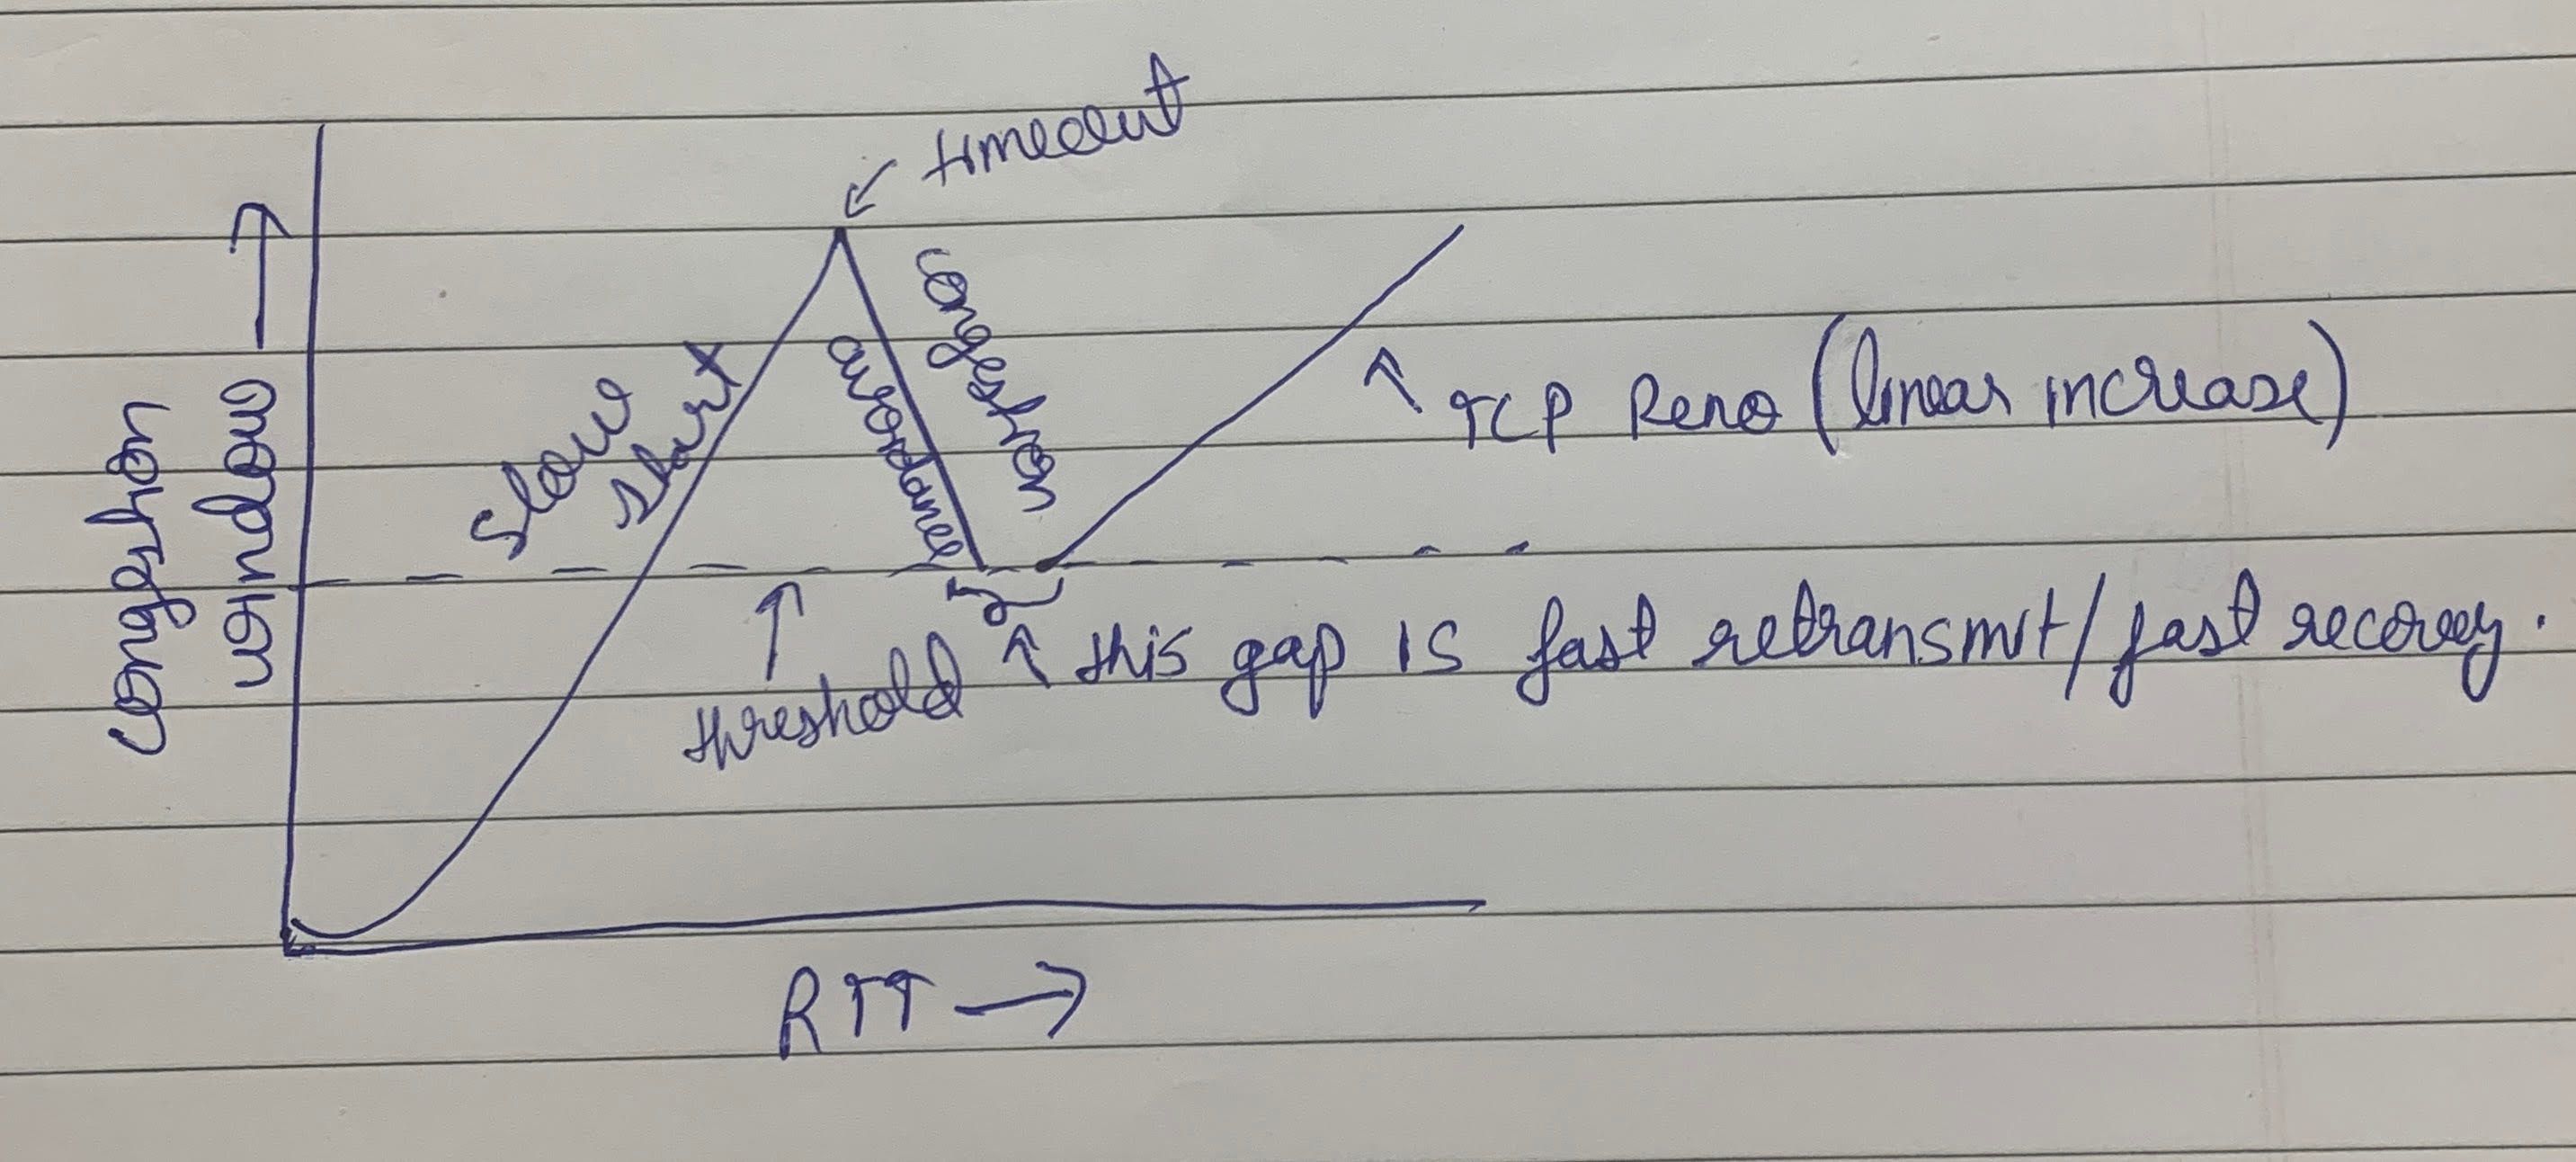 timeout
congestion
window
slow
start
congestion
avoidance
TCP Reno (linear increase)
threshold
this gap is fast retransmit/fast recovey.
RTT